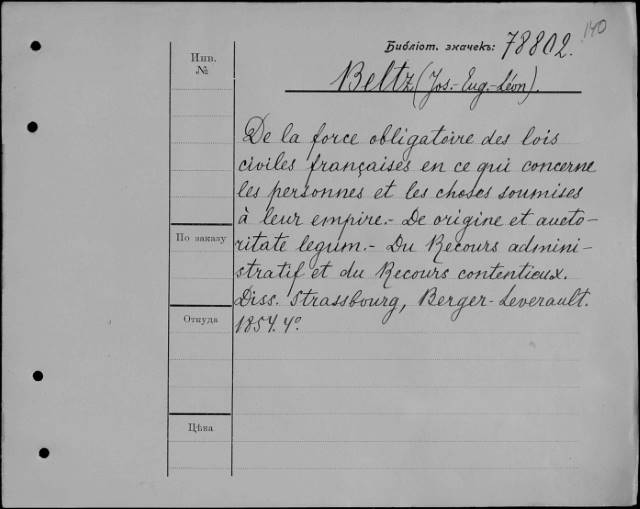 140
Библіот. значекъ: 78802.
Инв.
№
Beltz (Jos.-Eug.-Léon).
De la force obligatoire des lois
civiles françaises en ce qui concerne
les personnes et les choses soumises
à leur empire.- De origine et aucto-
ritate legum.- Du Recours admini-
stratif et du Recours contentieux.
Diss. Strassbourg, Berger-Leverault.
1854. 4º.
По заказу
Откуда
Цѣна